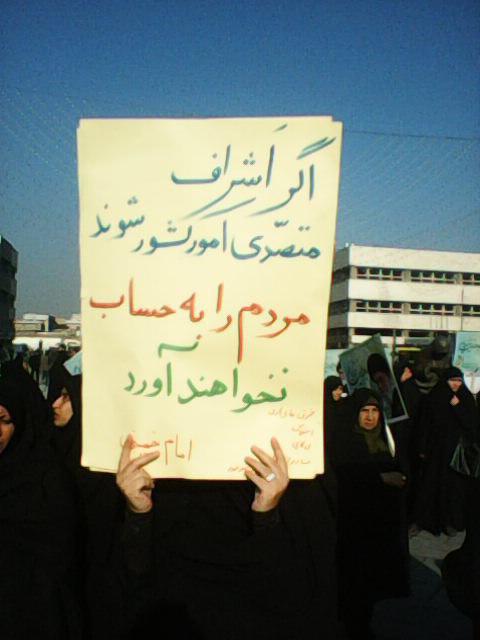 اگر اَشراف
متصدّی امور کشور شوند
مردم را به حساب
نخواهند آورد
امام خمینی